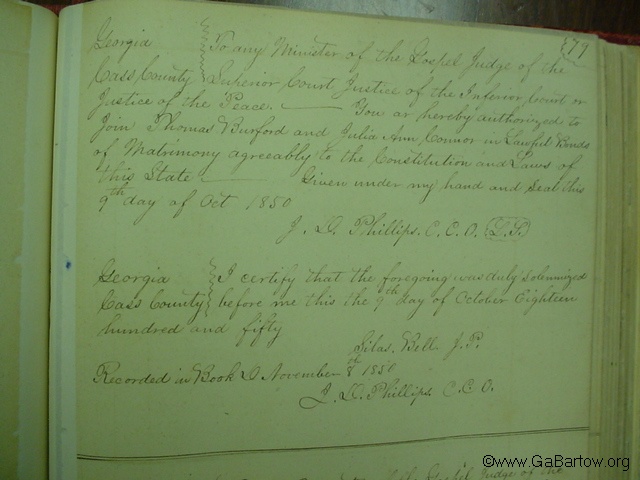 179
Georgia To any Minister of the Gospel Judge of the
Cass County Superior Court Justice of the Inferior Court or
Justice of the Peace. You ar hereby authorized to
Join Thomas Burford and Julia Ann Connor in Lawful Bonds
of Matrimony agreeably to the Constitution and Laws of
this State Given under my hand and Seal this
9th day of Oct 1850
J. D. Phillips. C. C. O. L.S.
Georgia I certify that the foregoing was duly Solemnized
Cass County before me this the 9th day of October Eighteen
hundred and fifty
Silas. Bell J.P.
Recorded in Book D November 8th 1850
J. D. Phillips C.C.O.
Judge of the
©www.GaBartow.org